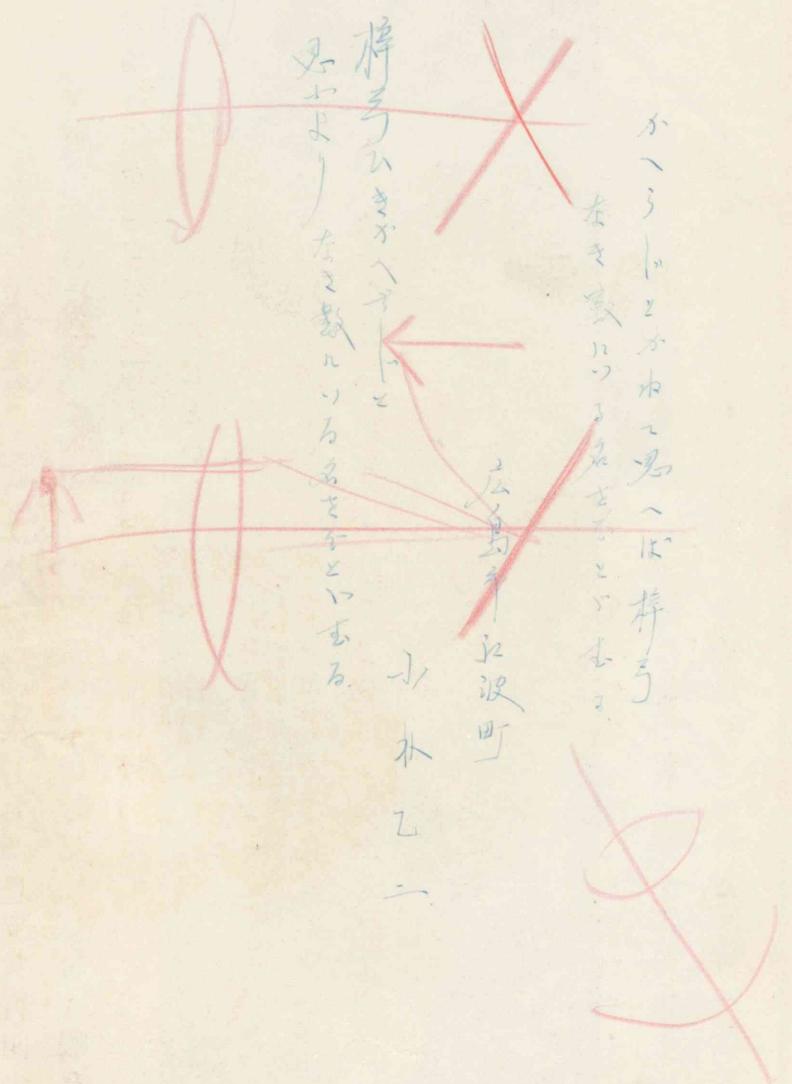 かへらじとかねて思へば梓弓
なき数にいる名をぞとゞむる
広島市江波町
小林乙二
梓弓ひきかへさじと
思ふより なき数にいる名をぞとゞむる